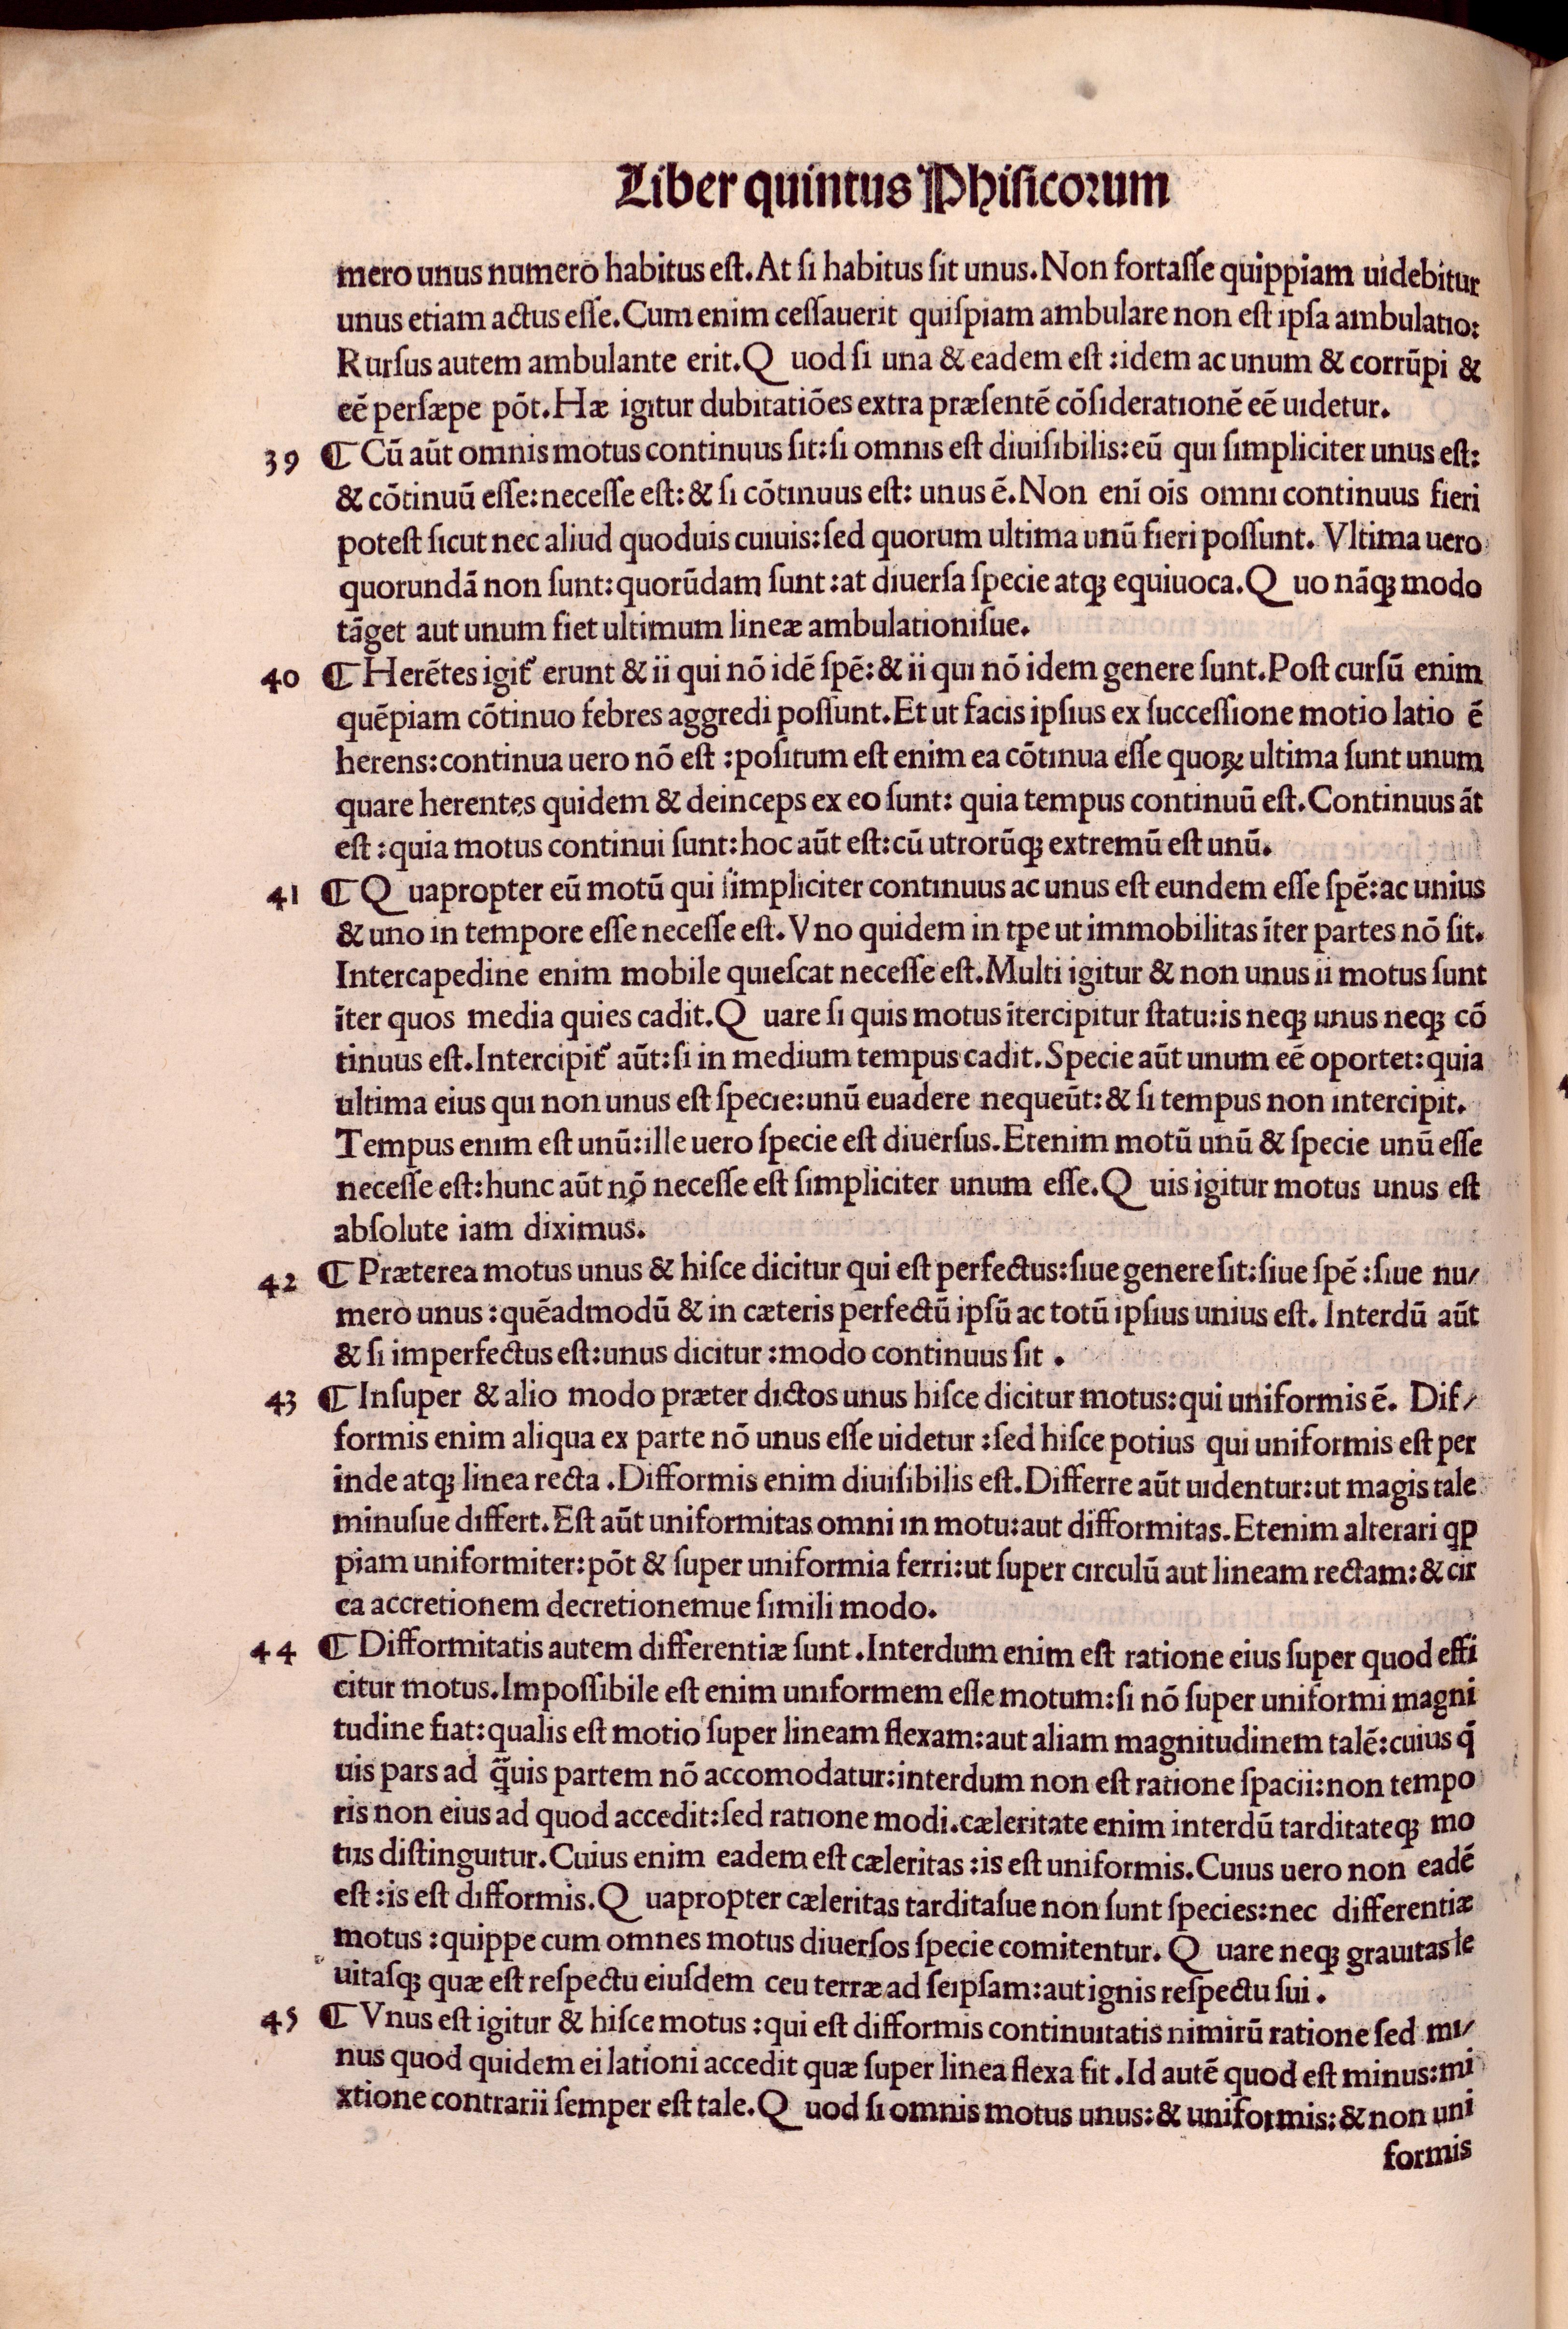 Liber quintus Phisicorum
mero unus numero habitus est. At si habitus sit unus. Non fortasse quippiam uidebitur
unus etiam actus esse. Cum enim cessauerit quispiam ambulare non est ipsa ambulatio:
Rursus autem ambulante erit. Q uod si una & eadem est : idem ac unum & corrūpi &
eē persæpe pōt. Hæ igitur dubitatiōes extra præsentē cōsiderationē eē uidetur.
39 ¶ Cū aūt omnis motus continuus sit: si omnis est diuisibilis: eū qui simpliciter unus est:
& cōtinuū esse: necesse est: & si cōtinuus est: unus ē. Non enī oīs omni continuus fieri
potest sicut nec aliud quoduis cuiuis: sed quorum ultima unū fieri possunt. Vltima uero
quorundā non sunt: quorūdam sunt : at diuersa specie atqꝫ equiuoca. Q uo nāqꝫ modo
tāget aut unum fiet ultimum lineæ ambulationisue.
40 ¶ Herētes igit᷑ erunt & ii qui nō idē spē: & ii qui nō idem genere sunt. Post cursū enim
quēpiam cōtinuo febres aggredi possunt. Et ut facis ipsius ex successione motio latio ē
herens: continua uero nō est : positum est enim ea cōtinua esse quoꝝ ultima sunt unum
quare herentes quidem & deinceps ex eo sunt: quia tempus continuū est. Continuus āt
est : quia motus continui sunt: hoc aūt est: cū utrorūqꝫ extremū est unū.
41 ¶ Q uapropter eū motū qui simpliciter continuus ac unus est eundem esse spē: ac unius
& uno in tempore esse necesse est. Vno quidem in tpe ut immobilitas īter partes nō sit.
Intercapedine enim mobile quiescat necesse est. Multi igitur & non unus ii motus sunt
īter quos media quies cadit. Q uare si quis motus ītercipitur statu: is neqꝫ unus neqꝫ cō
tinuus est. Intercipit᷑ aūt: si in medium tempus cadit. Specie aūt unum eē oportet: quia
ultima eius qui non unus est specie: unū euadere nequeūt: & si tempus non intercipit.
Tempus enim est unū: ille uero specie est diuersus. Etenim motū unū & specie unū esse
necesse est: hunc aūt nō necesse est simpliciter unum esse. Q uis igitur motus unus est
absolute iam diximus.
42 ¶ Præterea motus unus & hisce dicitur qui est perfectus: siue genere sit: siue spē : siue nu/
mero unus : quēadmodū & in cæteris perfectū ipsū ac totū ipsius unius est. Interdū aūt
& si imperfectus est: unus dicitur : modo continuus sit .
43 ¶ Insuper & alio modo præter dictos unus hisce dicitur motus: qui uniformis ē. Dif/
formis enim aliqua ex parte nō unus esse uidetur : sed hisce potius qui uniformis est per
īnde atqꝫ linea recta . Difformis enim diuisibilis est. Differre aūt uidentur: ut magis tale
minusue differt. Est aūt uniformitas omni in motu: aut difformitas. Etenim alterari qp
piam uniformiter: pōt & super uniformia ferri: ut super circulū aut lineam rectam: & cir
ca accretionem decretionemue simili modo.
44 ¶ Difformitatis autem differentiæ sunt . Interdum enim est ratione eius super quod effi
citur motus. Impossibile est enim uniformem esse motum: si nō super uniformi magni
tudine fiat: qualis est motio super lineam flexam: aut aliam magnitudinem talē: cuius q̄
uis pars ad q̄uis partem nō accomodatur: interdum non est ratione spacii: non tempo
ris non eius ad quod accedit: sed ratione modi. cæleritate enim interdū tarditateqꝫ mo
tus distinguitur. Cuius enim eadem est cæleritas : is est uniformis. Cuius uero non eadē
est : is est difformis. Q uapropter cæleritas tarditasue non sunt species: nec differentiæ
motus : quippe cum omnes motus diuersos specie comitentur. Q uare neqꝫ grauitas le
uitasqꝫ quæ est respectu eiusdem ceu terræ ad seipsam: aut ignis respectu sui .
45 ¶ Vnus est igitur & hisce motus : qui est difformis continuitatis nimirū ratione sed mi/
nus quod quidem ei lationi accedit quæ super linea flexa fit . Id autē quod est minus: mi
xtione contrarii semper est tale. Q uod si omnis motus unus: & uniformis: & non uni
formis